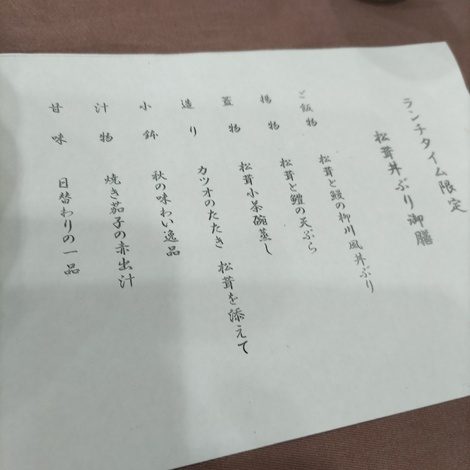 ランチタイム限定
松茸丼ぶり御膳
ご飯物 松茸と鰻の柳川風丼ぶり
揚物 松茸と鱧の天ぷら
蓋物 松茸小茶碗蒸し
造り カツオのたたき 松茸を添えて
小鉢 秋の味わい逸品
汁物 焼き茄子の赤出汁
甘味 日替わりの一品